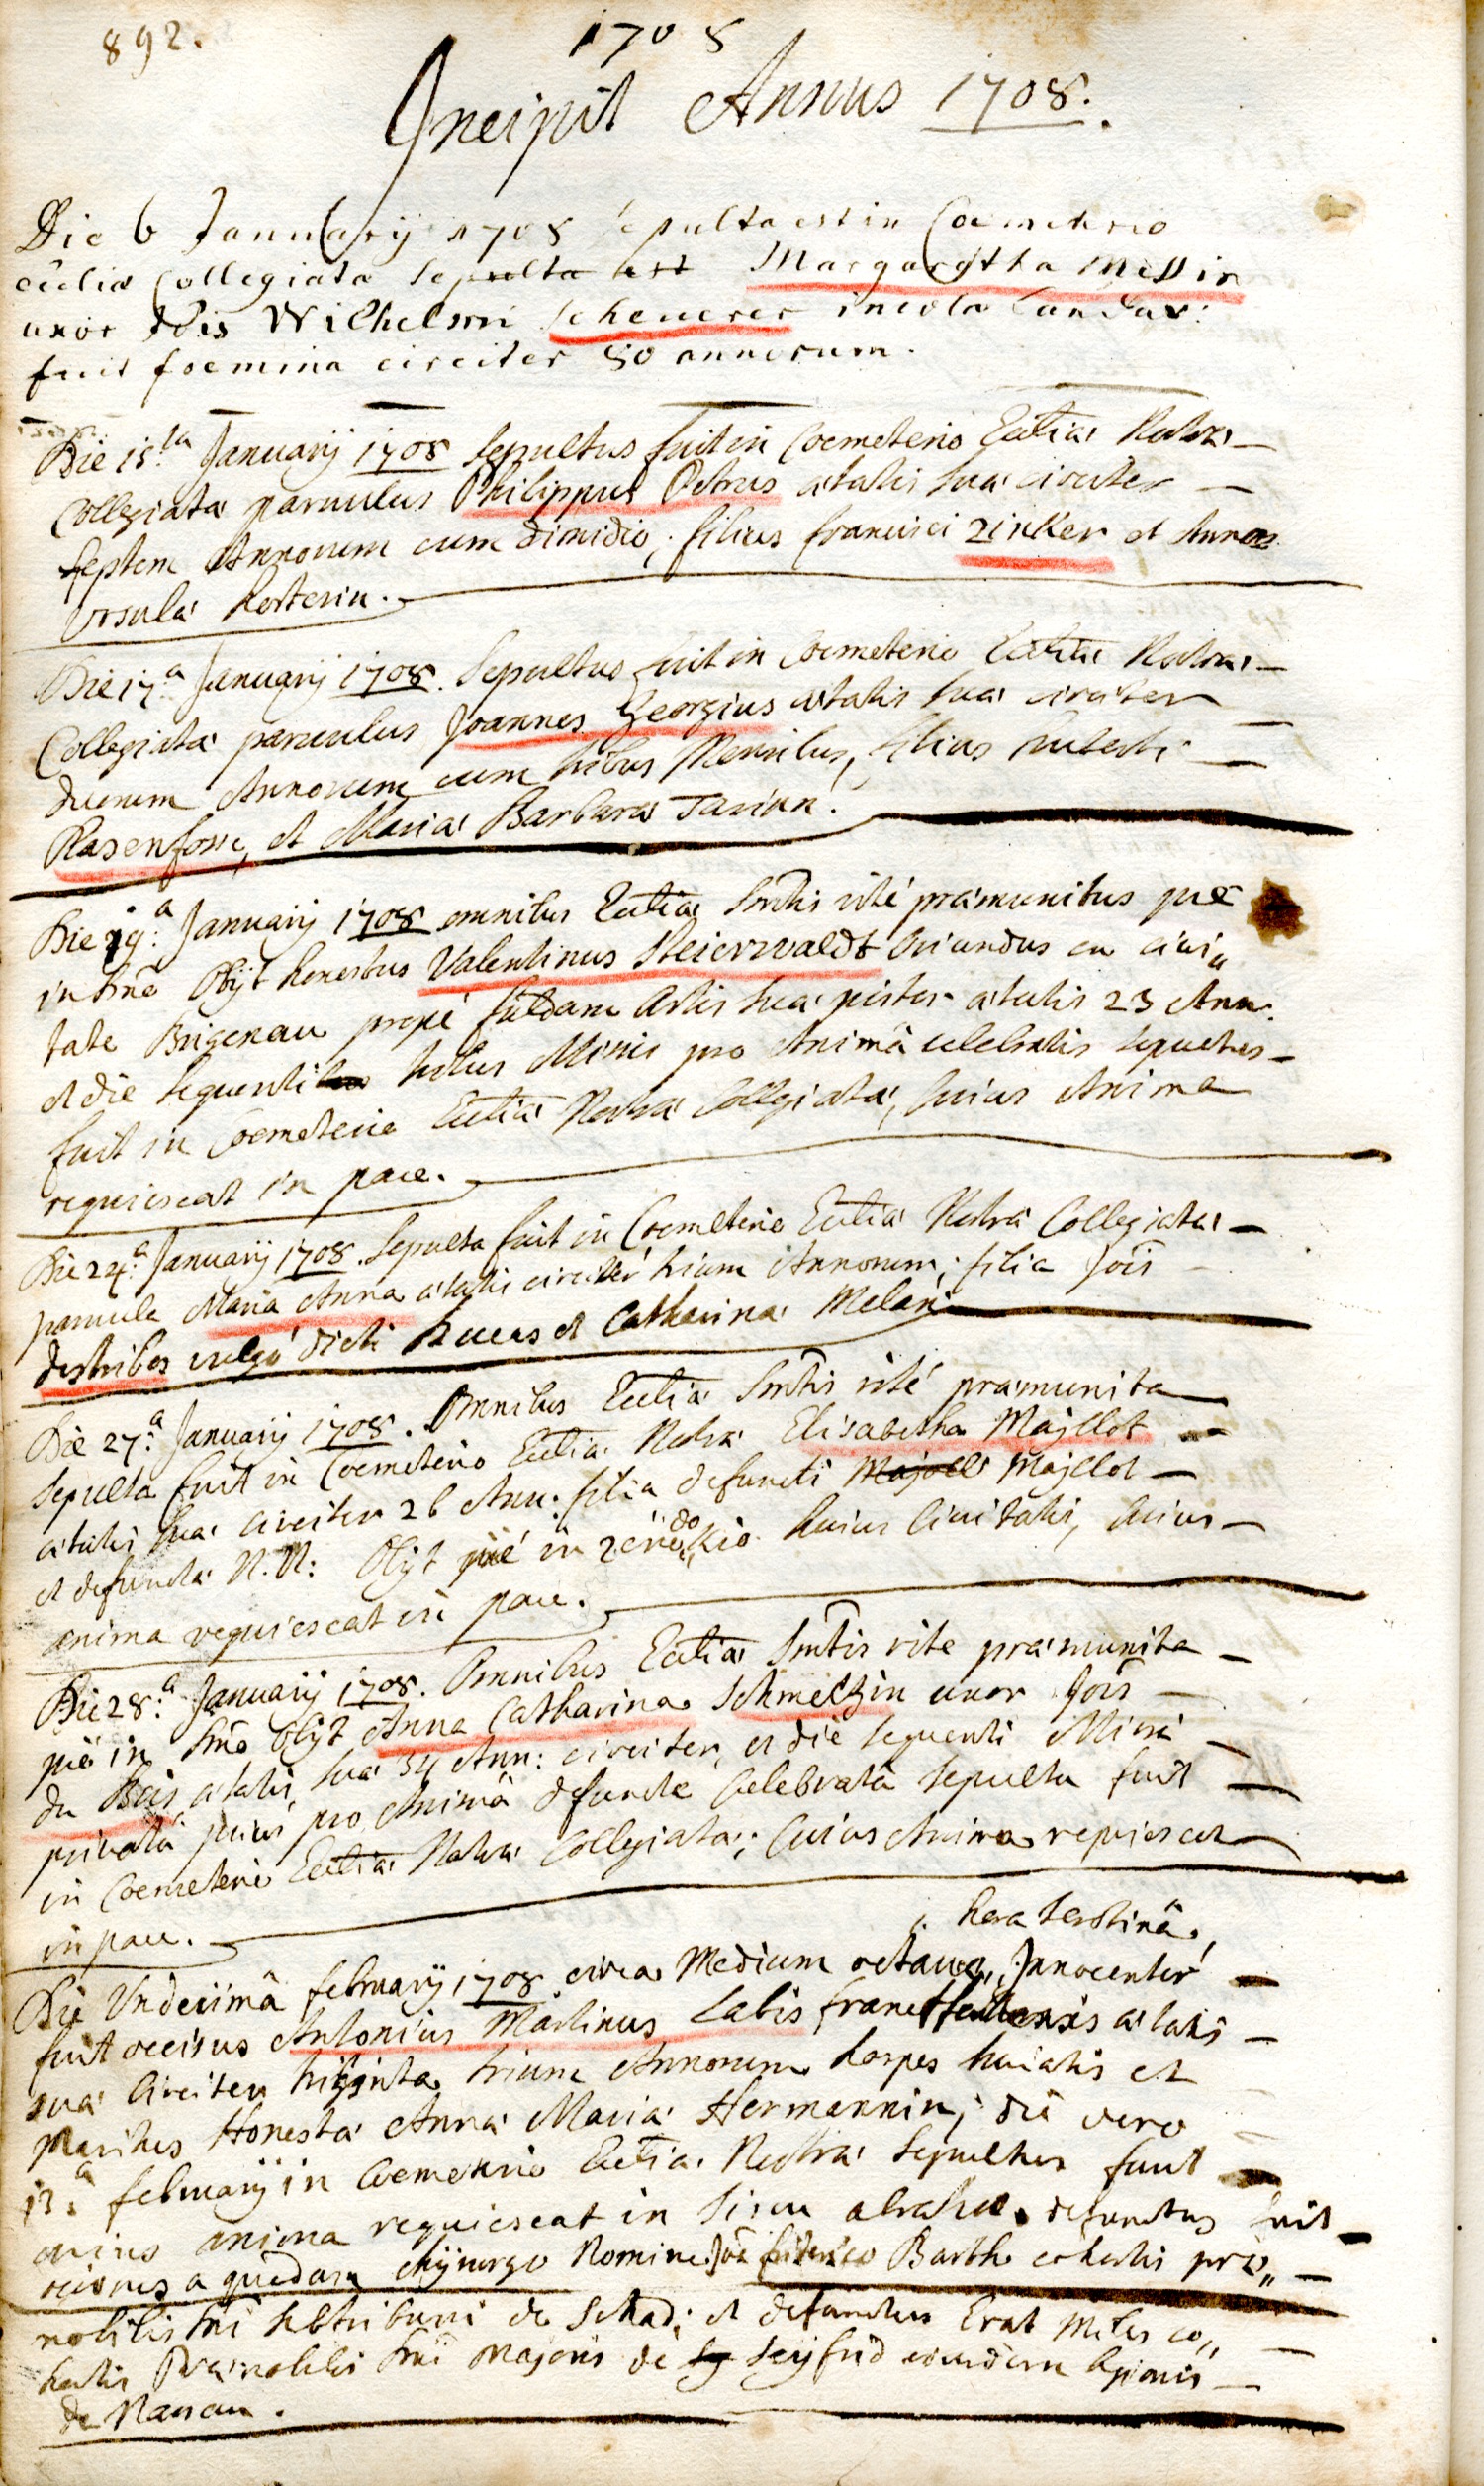 892.
1708
Incipit Annus 1708.
Die 6 January 1708 sepulta est in Coemeterio
Collegiata sepulta est Margarytha
uxor Wilhelmi Scheuerer incola Landav:
fuit foemina circiter 50 annorum.
Die 15.ta Januarij 1708 sepultus fuit in Coemeterio Eccliae Nostrae
Collegiatae parvulus Philippus Petrus aetatis suae circiter
septem Annorum cum dimidio, filius francisci Zinker et Annae
Ursulae
Die 17.a Januarij 1708. sepultus fuit in Coemeterio Eccliae Nostrae
Collegiatae parvulus Joannes Georgius aetatis suae circiter
duorum Annorum cum tribus Mensibus, filius
Rasenfosse, et Mariae Barbarae
Die 19.a Januarij 1708 omnibus Eccliae Smtis rité praemunitus pie
in Dno Obijt honestus Valentinus Steierwaldt oriundus ex civi„
tate prope fuldam Artis suae pistor aetatis 23 Ann.
et die sequenti Missis pro Animâ celebratis sepultus
fuit in Coemeterio Eccliae Nostrae Collegiatae, Cuius Anima
requiescat in pace.
Die 24.a Januarij 1708. Sepulta fuit in Coemeterio Eccliae Nostrae Collegiatae
parvula Maria Anna aetatis circiter trium Annorum, filia Jois
destribos vulgó dicti Lucas et Catharinae Melani
Die 27.a Januarij 1708. Omnibus Eccliae Smtis rité praemunita
Sepulta fuit in Coemeterio Eccliae Nostrae Elisabetha Majllot
aetatis suae circiter 26 Ann. filia defuncti Majllot
et defunctae N.N: Obijt pié in huius Civitatis, Cuius
anima requiescat in pace.
Die 28.a Januarij 1708. Omnibus Eccliae Smtis rite praemunita
pié in Dno Obijt Anna Catharina Schmeltzin uxor Jois
du Bois aetatis suae 54 Ann: circiter, et die sequenti Missâ
privatâ prius pro Animâ defunctae Celebratâ Sepulta fuit
in Coemeterio Eccliae Nostrae Collegiatae; Cuius Anima requiescat
in pace.
hora Serotinâ,
Die Undecimâ februarij 1708. circa Medium octavae, Innocenter
fuit occisus Antonius Martinus Labis aetatis
suae Circiter triginta trium Annorum hospes huiatis et
Maritus Honestae Annae Mariae Hermannin; die vero
13.a februarij in Coemeterio Eccliae Nostrae Sepultus fuit
cuius anima requiescat in Sinu abrahae. defunctus fuit
occisus a quodam chyrurgo Nomine Barth cohortis prae„
nobilis Dni de Schad; et defunctus Erat Miles co„
hortis Praenobilis Dni Majoris de Seijfrid eiusdem legionis
de Nassau.